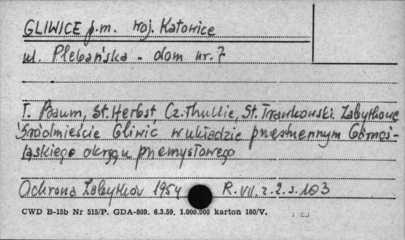 GLIWICE p.m. woj. Katowice
ul. Plebańska - dom nr. 7
T. Baum, St. Herbst Cz. Thullie, St. Trawkowski. Zabytkowe
Śródmieście Gliwic w układzie przestrzennym Górnoś-
ląskiego okręgu przemysłowego
Ochrona Zabytków 1954 R. VII. z. 2. s. 103
CWD B-15b Nr 515/P. GDA-809. 6.3.59. 1.000.000 karton 180/V.